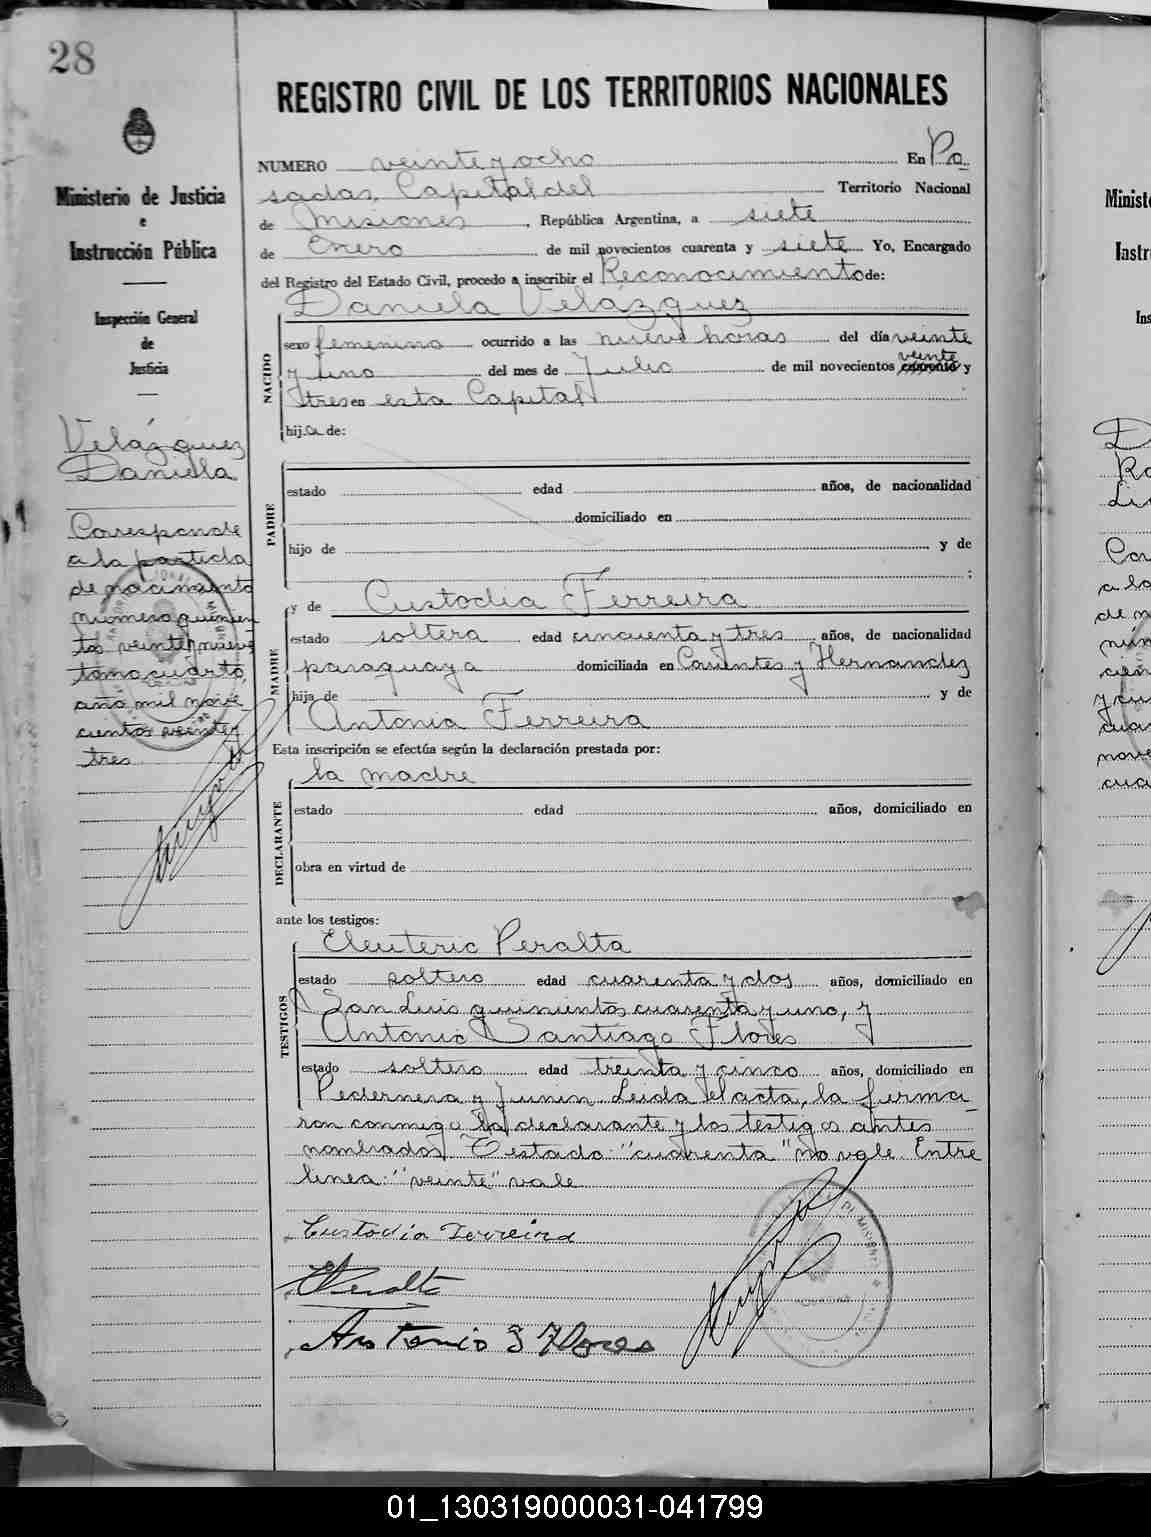 28
REGISTRO CIVIL DE LOS TERRITORIOS NACIONALES
Ministerio de Justicia
e
Instrucción Pública
Inspección General
de
Justicia
Velázquez
Daniela
Corresponde
a la partida
de nacimiento
número quinien
tos veintenueve
tomo cuarto
año mil nove
cientos veinte y
tres
NUMERO veinte y ocho En Po
sadas, Capital del Territorio Nacional
de Misiones, República Argentina, a siete
de Enero de mil novecientos cuarenta y siete Yo, Encargado
del Registro del Estado Civil, procedo a inscribir el Reconocimiento de:
Daniela Velázquez
NACIDO
sexo femenino ocurrido a las nueve horas del día veinte
y uno del mes de Julio de mil novecientos cuarenta veinte y
tres en esta Capital
hija de:
PADRE
estado edad años, de nacionalidad
domiciliado en
hijo de y de
;
MADRE
y de Custodia Ferreira
estado soltera edad cincuenta y tres, años, de nacionalidad
paraguaya domiciliada en Corrientes y Hernandez
hija de y de
Antonia Ferreira
Esta inscripción se efectúa según la declaración prestada por:
la madre
DECLARANTE
estado edad años, domiciliado en
obra en virtud de
ante los testigos:
TESTIGOS
Eleuterio Peralta
estado soltero edad cuarenta y dos años, domiciliado en
San Luis quinientos cuarenta y uno, y
Antonio Santiago Flores
estado soltero edad treinta y cinco años, domiciliado en
Pedernera y Junin. Leida el acta, la firma-
ron conmigo la declarante y los testigos antes
nombrados. Testado: "cuarenta" no vale. Entre
linea: "veinte" vale
Custodia Ferreira
EPeralta
Antonio S Flores
Minist
Instr
Ins
01_130319000031-041799